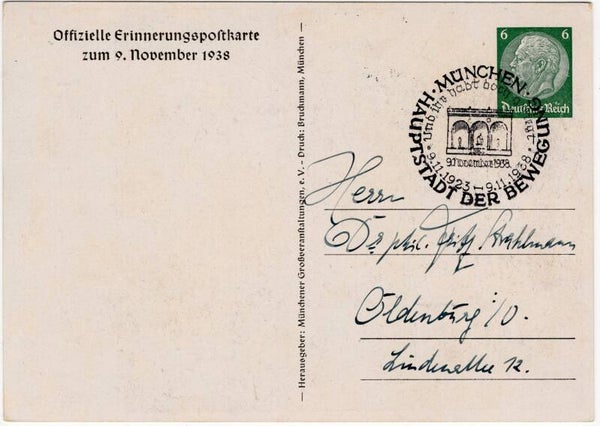 Offizielle Erinnerungspostkarte
zum 9. November 1938
Herausgeber: Münchener Großveranstaltungen, e. V. - Druch: Bruckmann, München
6 6
Deutsches Reich
MÜNCHEN · HAUPTSTADT DER BEWEGUNG ·
Und ihr habt doch gesiegt
9. November 1938.
9.11.1923 – 9.11.1938
Herrn
Fritz
Oldenburg i/O.
Lindenallee 12.